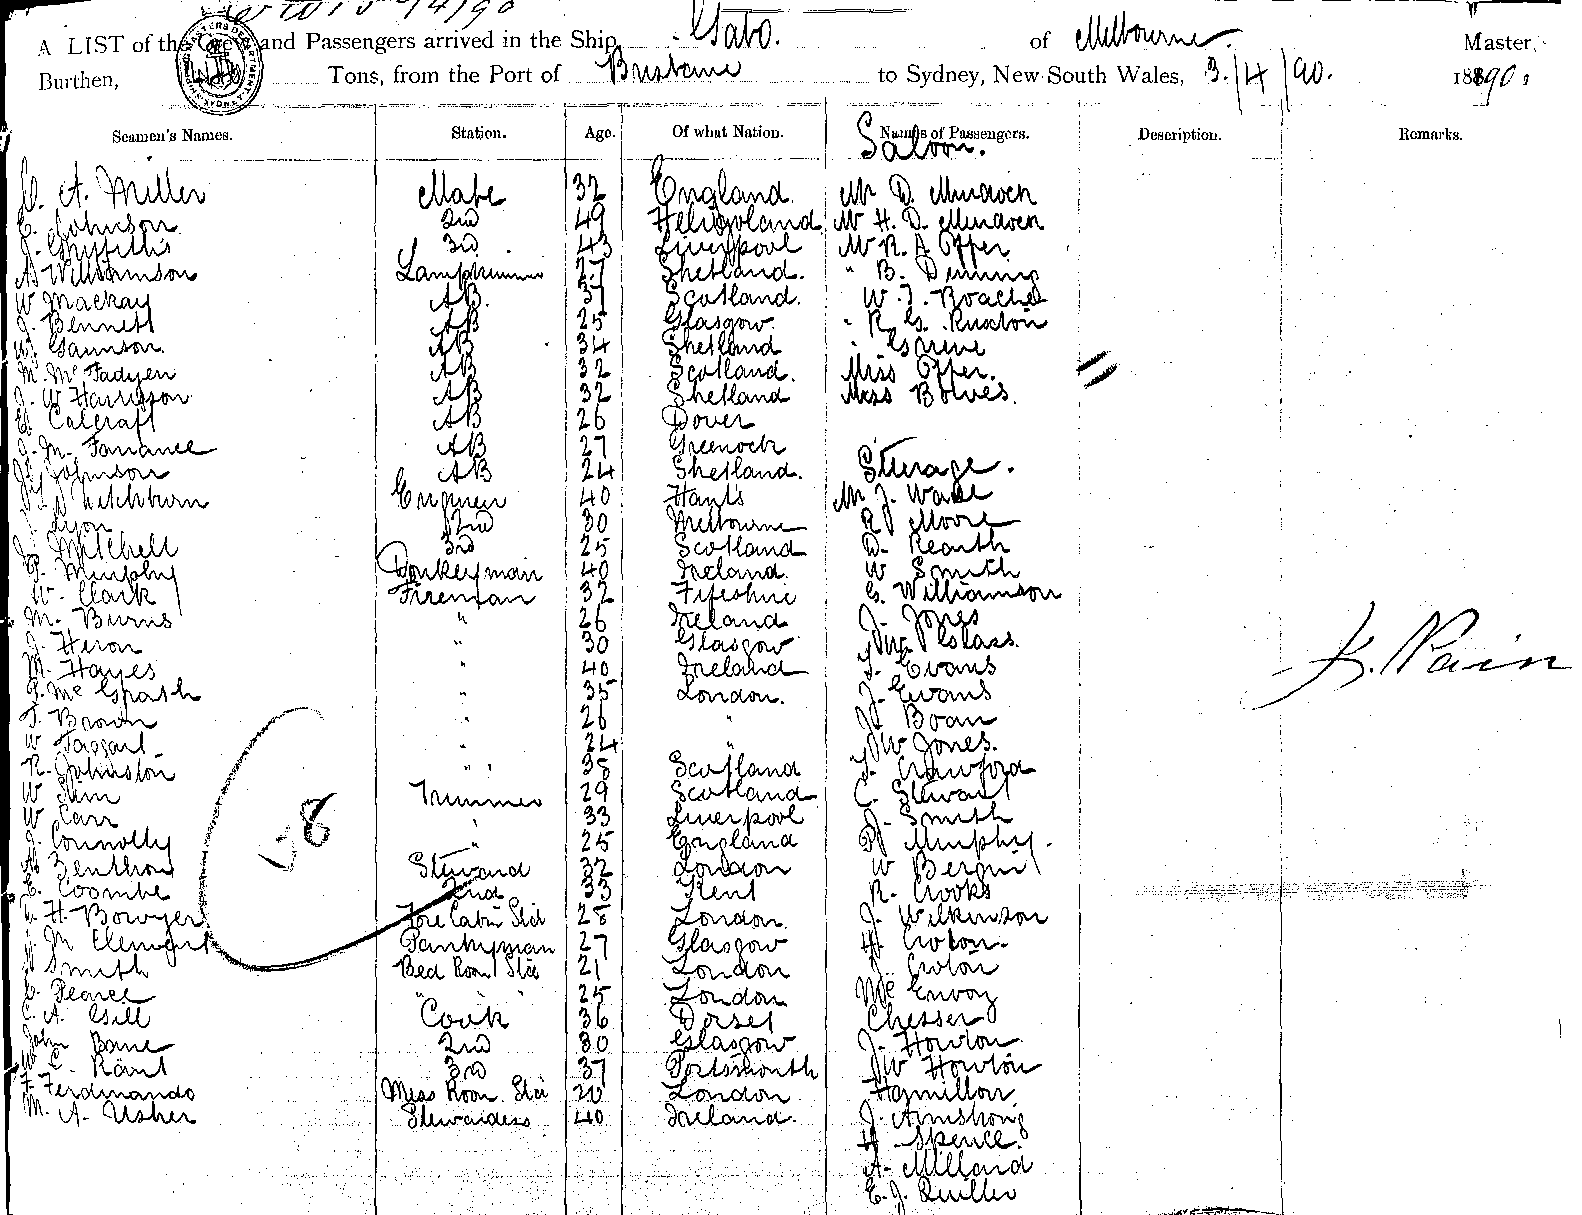 A LIST of the Crew and Passengers arrived in the Ship, Gabo. of Melbourne. Master,
Burthen, Tons, from the Port of Brisbane to Sydney, New South Wales, 3/4/90. 1890.
Seamen's Names. Station. Age. Of what Nation. Names of Passengers. Description. Remarks.
Saloon.
A. Miller Mate 32 England Mr D. Murdoch
E. Johnson 2nd 49 Heligoland Mr H. D. Murdoch
J. Griffiths 3rd 43 Liverpool Mr R. A Offer
A Williamson Lamptrimmer 27 Shetland. " B.
W Mackay AB. 37 Scotland. W. J. Roache
J. Bennett AB 25 Glasgow. " R. G. Ruxton
Gaunson. AB 34 Shetland
M. Mc Fadyen AB 32 Scotland. Miss Offer.
J. W Harrison AB 32 Shetland Miss Bowes.
Calcraft AB 26 Dover
J. M. AB 27 Greenock
J. Johnson AB 24 Shetland. Steerage.
Hitchburn Engineer 40 Hants Mr J. Wade
Lyon 2nd 30 Melbourne Moore
J. Mitchell 3rd 25 Scotland D.
P. Murphy Donkeyman 40 Ireland. W Smith
W. Clark Fireman 32 Fifeshire G. Williamson
M. Burns " 26 Ireland J. Jones
J. Heron " 30 Glasgow Mrs Glass.
M. Hayes " 40 Ireland J. Evans
J. Mc Grath " 35 London. J. Evans
T. Brown " 26 " Boan
W Taggart " 24 " W Jones.
R. Johnston " 38 Scotland J. Crawford
W Sim Trimmer 29 Scotland C. Stewart
W Carr " 33 Liverpool J. Smith
J. Connolly " 25 England P. Murphy.
A Benthon Steward 32 London W Bergin
E. Coombe 2nd 33 Kent R. Crooks
H. Bowyer Fore Cabin Std 28 London. J. Wilkinson
M Clement Pantryman 27 Glasgow H. Croton.
Smith Bed Room Std 21 London J. Croton
Pearce " " 25 London Mc Envoy
C. A. Gill Cook 36 Dorset Chesser
John Bane 2nd 30 Glasgow J. Howton
C. Rant 3rd 37 Portsmouth W Howton
F. Ferdinando Mess Room Std 20 London Hamilton.
M. A. Usher Stewardess 40 Ireland. J. Armstrong
H Spence.
A. Milland
E. J. Quiller
58
J. Nain